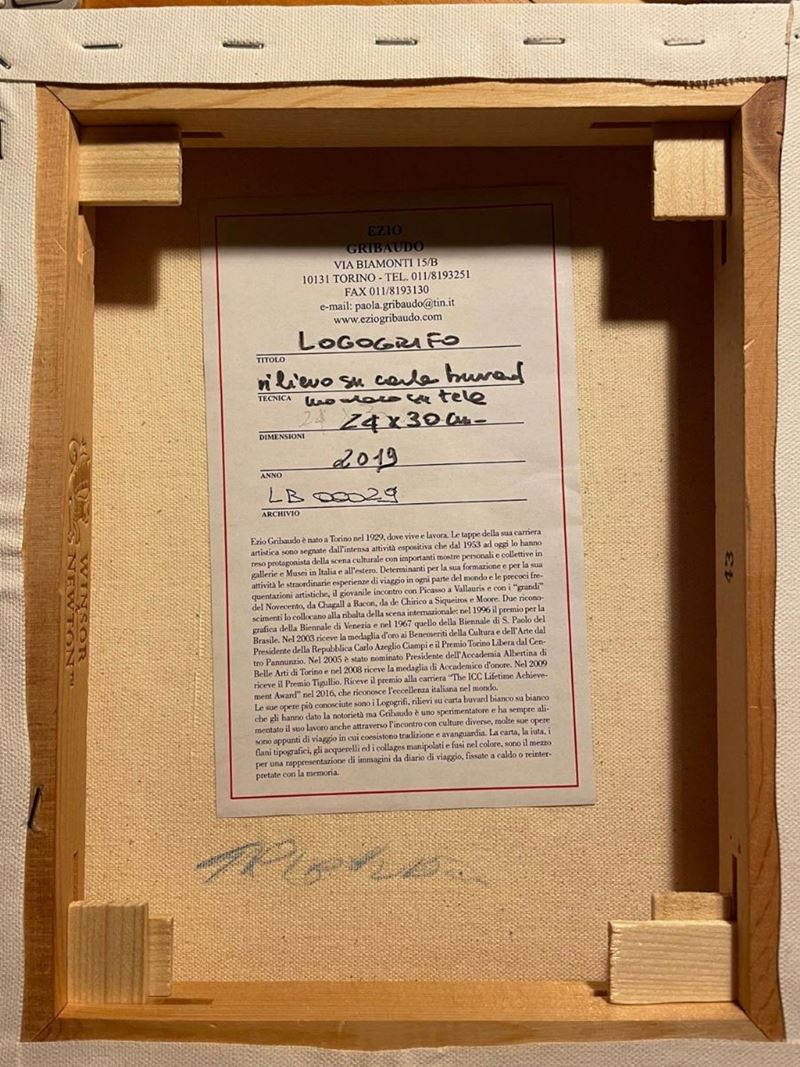 EZIO
GRIBAUDO
VIA BIAMONTI 15/B
10131 TORINO - TEL. 011/8193251
FAX 011/8193130
e-mail: paola.gribaudo@tin.it
www.eziogribaudo.com
LOGOGRIFO
TITOLO
rilievo su carta buvard
TECNICA su tela
24 x 30 cm-
DIMENSIONI
2019
ANNO
LB 00029
ARCHIVIO
Ezio Gribaudo è nato a Torino nel 1929, dove vive e lavora. Le tappe della sua carriera
artistica sono segnate dall'intensa attività espositiva che dal 1953 ad oggi lo hanno
reso protagonista della scena culturale con importanti mostre personali e collettive in
gallerie e Musei in Italia e all'estero. Determinanti per la sua formazione e per la sua
attività le straordinarie esperienze di viaggio in ogni parte del mondo e le precoci fre-
quentazioni artistiche, il giovanile incontro con Picasso a Vallauris e con i "grandi"
del Novecento, da Chagall a Bacon, da de Chirico a Siqueiros e Moore. Due ricono-
scimenti lo collocano alla ribalta della scena internazionale: nel 1996 il premio per la
grafica della Biennale di Venezia e nel 1967 quello della Biennale di S. Paolo del
Brasile. Nel 2003 riceve la medaglia d'oro ai Benemeriti della Cultura e dell'Arte dal
Presidente della Repubblica Carlo Azeglio Ciampi e il Premio Torino Libera dal Cen-
tro Pannunzio. Nel 2005 è stato nominato Presidente dell'Accademia Albertina di
Belle Arti di Torino e nel 2008 riceve la medaglia di Accademico d'onore. Nel 2009
riceve il Premio Tigullio. Riceve il premio alla carriera "The ICC Lifetime Achieve-
ment Award" nel 2016, che riconosce l'eccellenza italiana nel mondo.
Le sue opere più conosciute sono i Logogrifi, rilievi su carta buvard bianco su bianco
che gli hanno dato la notorietà ma Gribaudo è uno sperimentatore e ha sempre ali-
mentato il suo lavoro anche attraverso l'incontro con culture diverse, molte sue opere
sono appunti di viaggio in cui coesistono tradizione e avanguardia. La carta, la iuta, i
flani tipografici, gli acquerelli ed i collages manipolati e fusi nel colore, sono il mezzo
per una rappresentazione di immagini da diario di viaggio, fissate a caldo o reinter-
pretate con la memoria.
WINSOR
NEWTON™
43